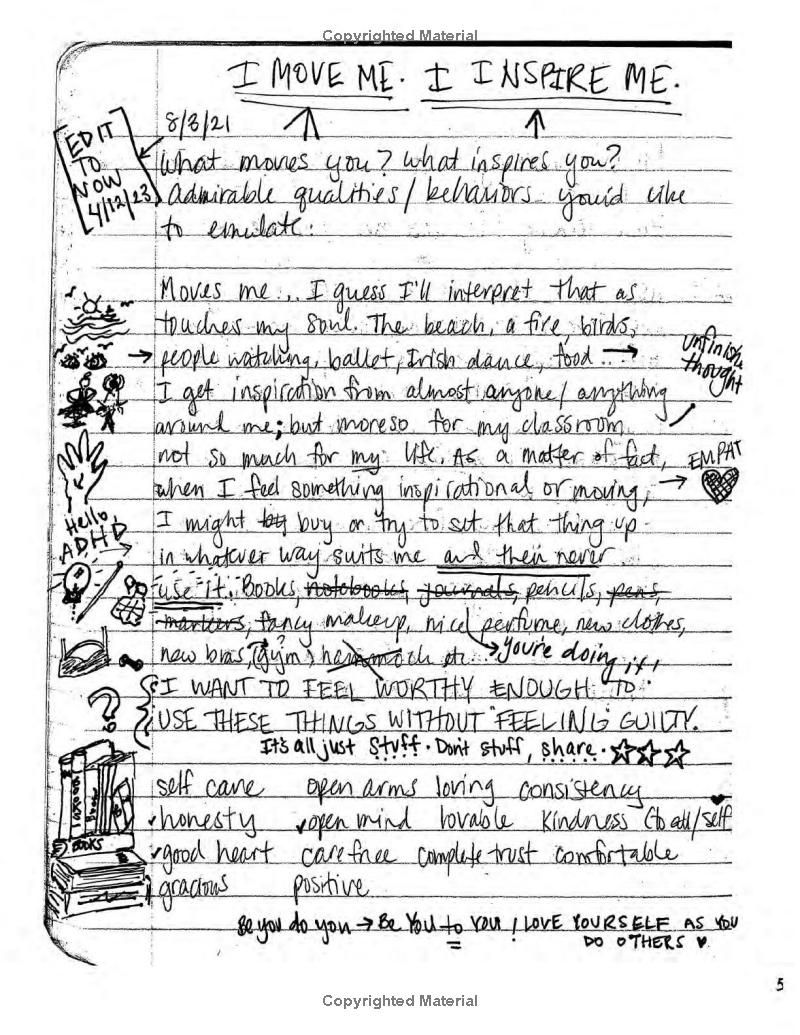 Copyrighted Material
I MOVE ME. I INSPIRE ME.
8/3/21
EDIT
TO
NOW
4/12/23
What moves you? What inspires you?
Admirable qualities/behaviors you'd like
to emulate:
Moves me... I guess I'll interpret that as
touches my soul. The beach, a fire birds,
people watching, ballet, Irish dance, food...
unfinish
thought
I get inspiration from almost anyone/anything
around me; but moreso for my classroom
not so much for my life. As a matter of fact,
EMPAT
when I feel something inspirational or moving,
Hello,
ADHD
I might buy or try to set that thing up
in whatever way suits me and then never
use it. Books, notebooks, journals, pencils, pens,
markers, fancy makeup, nice perfume, new clothes,
new bras, (gym?) hammock etc...
you're doing it!
? I WANT TO FEEL WORTHY ENOUGH TO
USE THESE THINGS WITHOUT FEELING GUILTY.
It's all just stuff. Don't stuff, share.
self care open arms loving consistency
honesty open mind lovable kindness (to all/self
good heart carefree complete trust comfortable
BOOKS
gracious positive
Be you do you → Be You to You! LOVE YOURSELF AS YOU
DO OTHERS
5
Copyrighted Material